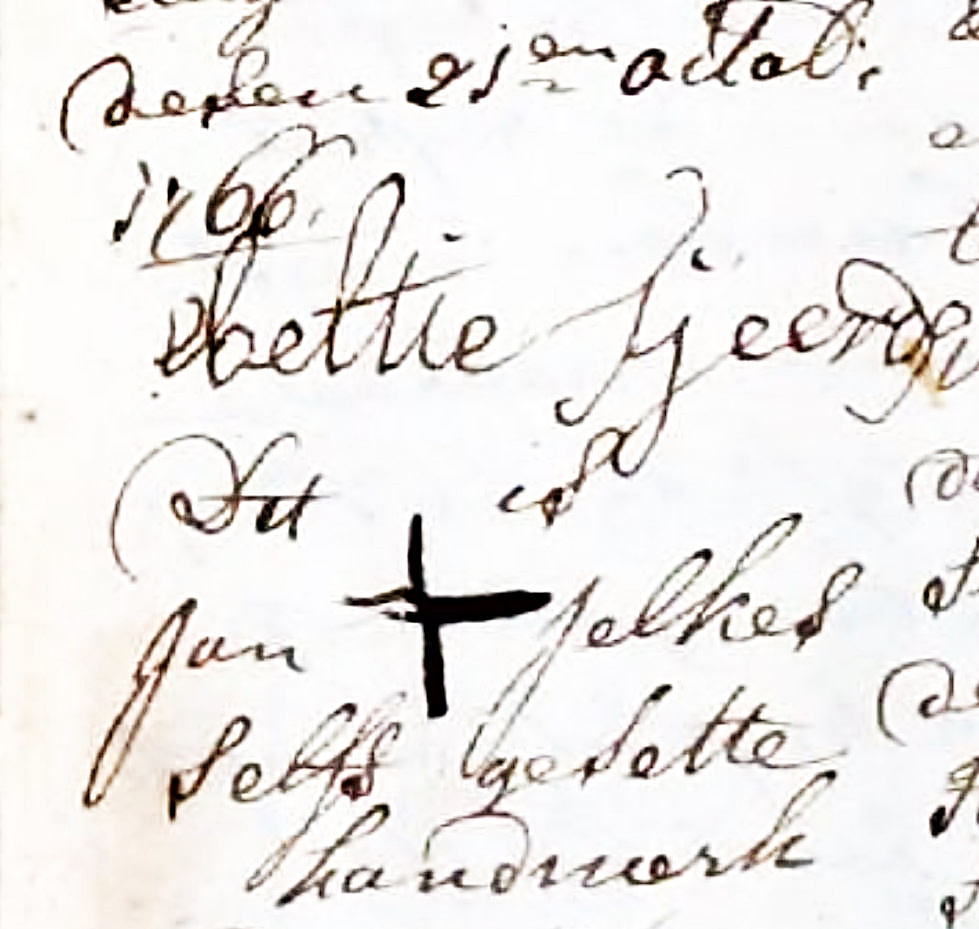 desen 21en octob:
1766.
Sjeerds
Dit is
Jan + Jelkes
selfs gesette
handmerk